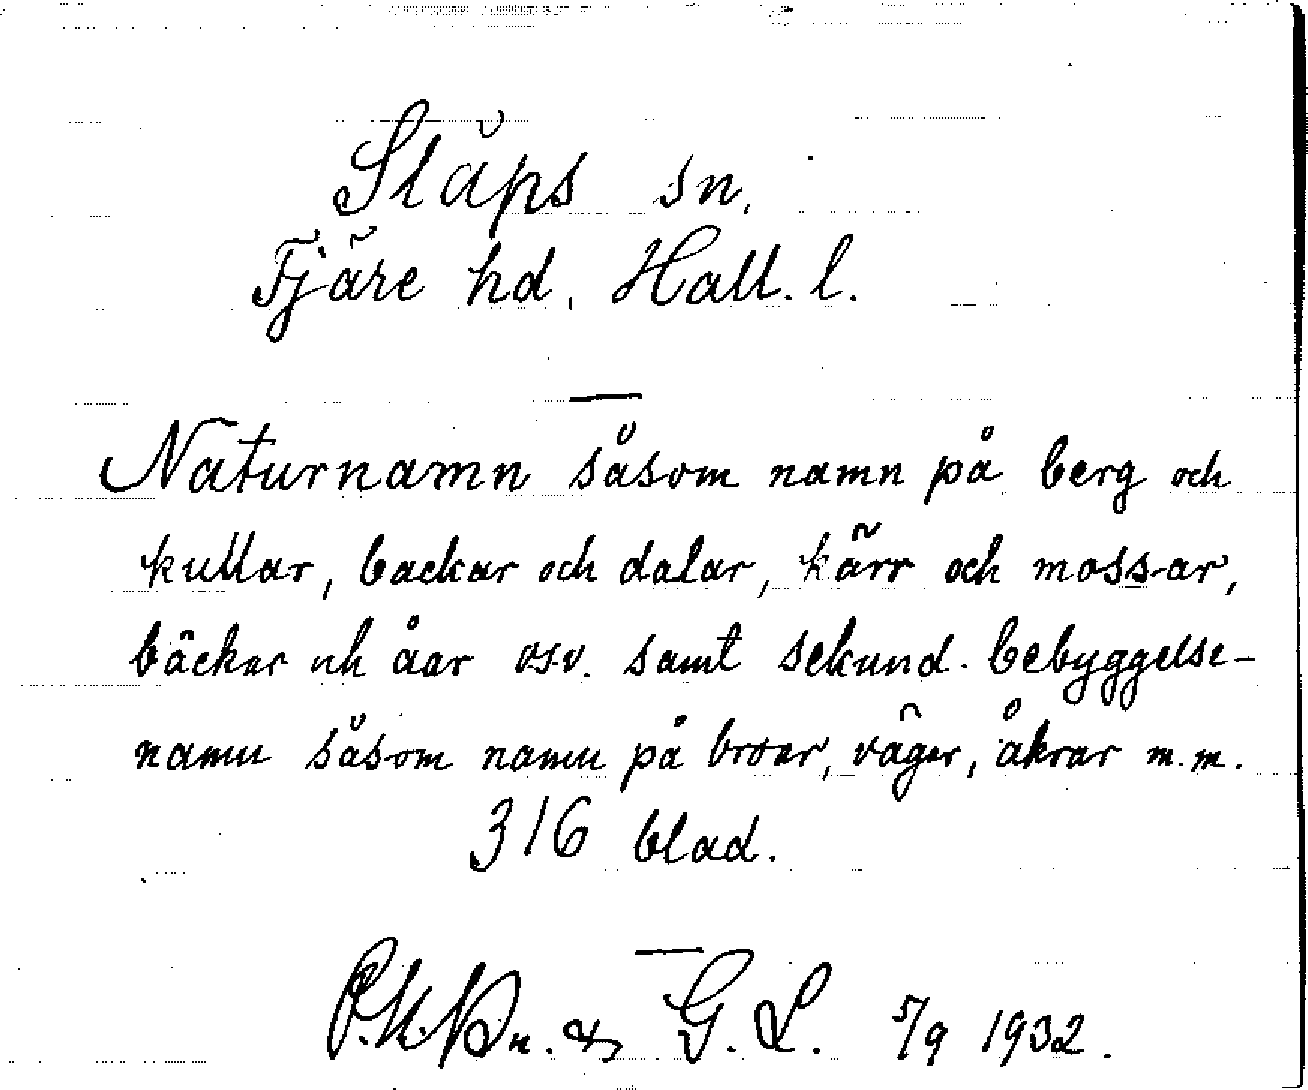 Släps sn.
Fjäre hd. Hall. l.
Naturnamn såsom namn på berg och
kullar, backar och dalar, kärr och mossar,
bäckar och åar osv. samt sekund. bebyggelse-
namn såsom namn på broar, vägar, åkrar m.m.
316 blad.
G. L. 5/9 1932.